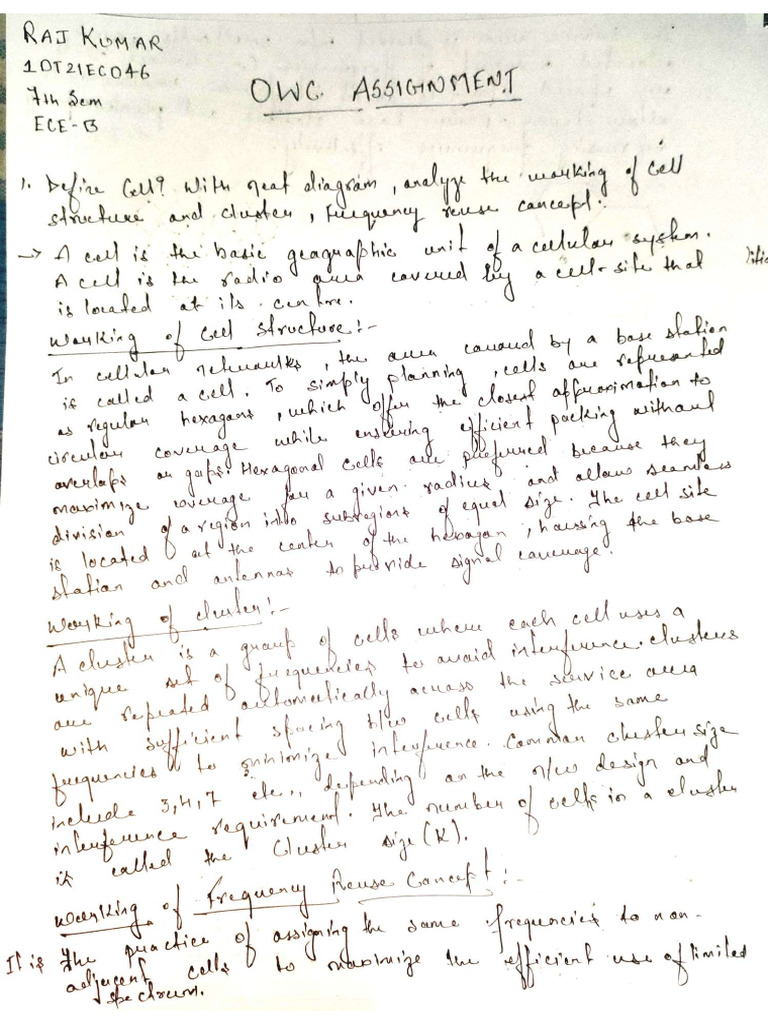 RAJ KUMAR
1OT21EC046
7th Sem
ECE-B
OWC ASSIGNMENT
1. Define Cell? With neat diagram, analyze the working of cell
structure and cluster, frequency reuse concept.
→ A cell is the basic geographic unit of a cellular system.
A cell is the radio area covered by a cell-site that
is located at its centre.
Working of Cell Structure:-
In cellular networks, the area covered by a base station
is called a cell. To simply planning, cells are represented
as regular hexagons, which offer the closest approximation to
circular coverage while ensuring efficient packing without
overlaps or gaps. Hexagonal cells are preferred because they
maximize coverage for a given radius and allows seamless
division of a region into subregions of equal size. The cell site
is located at the center of the hexagon, housing the base
station and antennas to provide signal coverage.
Working of cluster:-
A cluster is a group of cells where each cell uses a
unique set of frequencies to avoid interference. Clusters
are repeated automatically across the service area
with sufficient spacing b/w cells using the same
frequencies to minimize interference. Common cluster size
include 3,4,7 etc., depending on the n/w design and
interference requirement. The number of cells in a cluster
is called the Cluster size (K).
Working of Frequency Reuse Concept:-
It is The practice of assigning the same frequencies to non-
adjacent cells to maximize the efficient use of limited
spectrum.